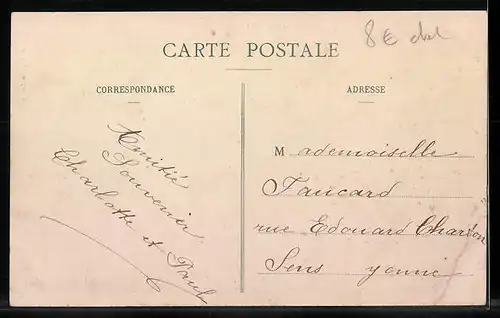 8€
CARTE POSTALE
CORRESPONDANCE
Amitié
Souvenir
Charlotte et Paul
ADRESSE
Mademoiselle
Faucard
rue Edouard Charton
Sens yonne